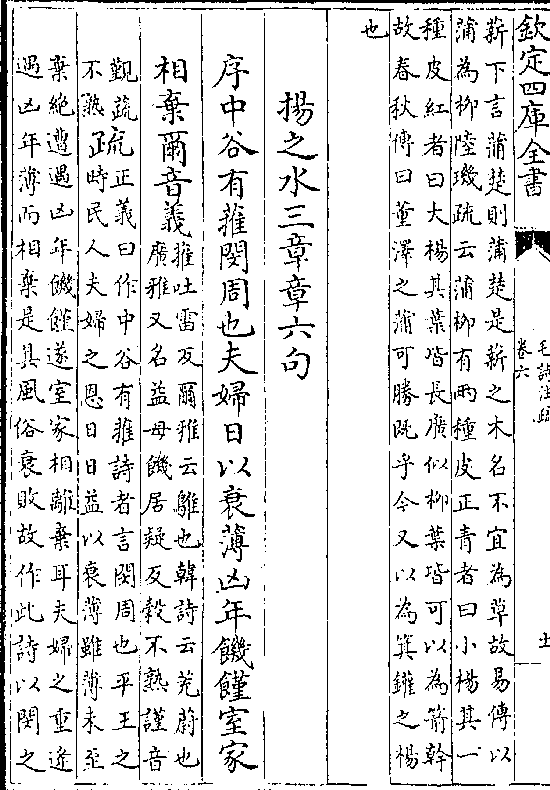 欽定四庫全書
毛詩注疏
卷六
十
薪下言蒲楚則蒲楚是薪之木名不宜為草故易傳以
蒲為柳陸璣疏云蒲柳有兩種皮正青者曰小楊其一
種皮紅者曰大楊其葉皆長廣似柳葉皆可以為箭幹
故春秋傳曰董澤之蒲可勝既乎今又以為箕鑵之楊
也
揚之水三章章六句
序中谷有蓷閔周也夫婦日以衰薄凶年饑饉室家
相棄爾音義
蓷吐雷反爾雅云鵻也韓詩云茺蔚也
廣雅又名益母饑居疑反穀不熟謹音
覲蔬
不熟疏
正義曰作中谷有蓷詩者言閔周也平王之
時民人夫婦之恩日日益以衰薄雖薄未至
棄絶遭遇凶年饑饉遂室家相離棄耳夫婦之重逢
遇凶年薄而相棄是其風俗衰敗故作此詩以閔之